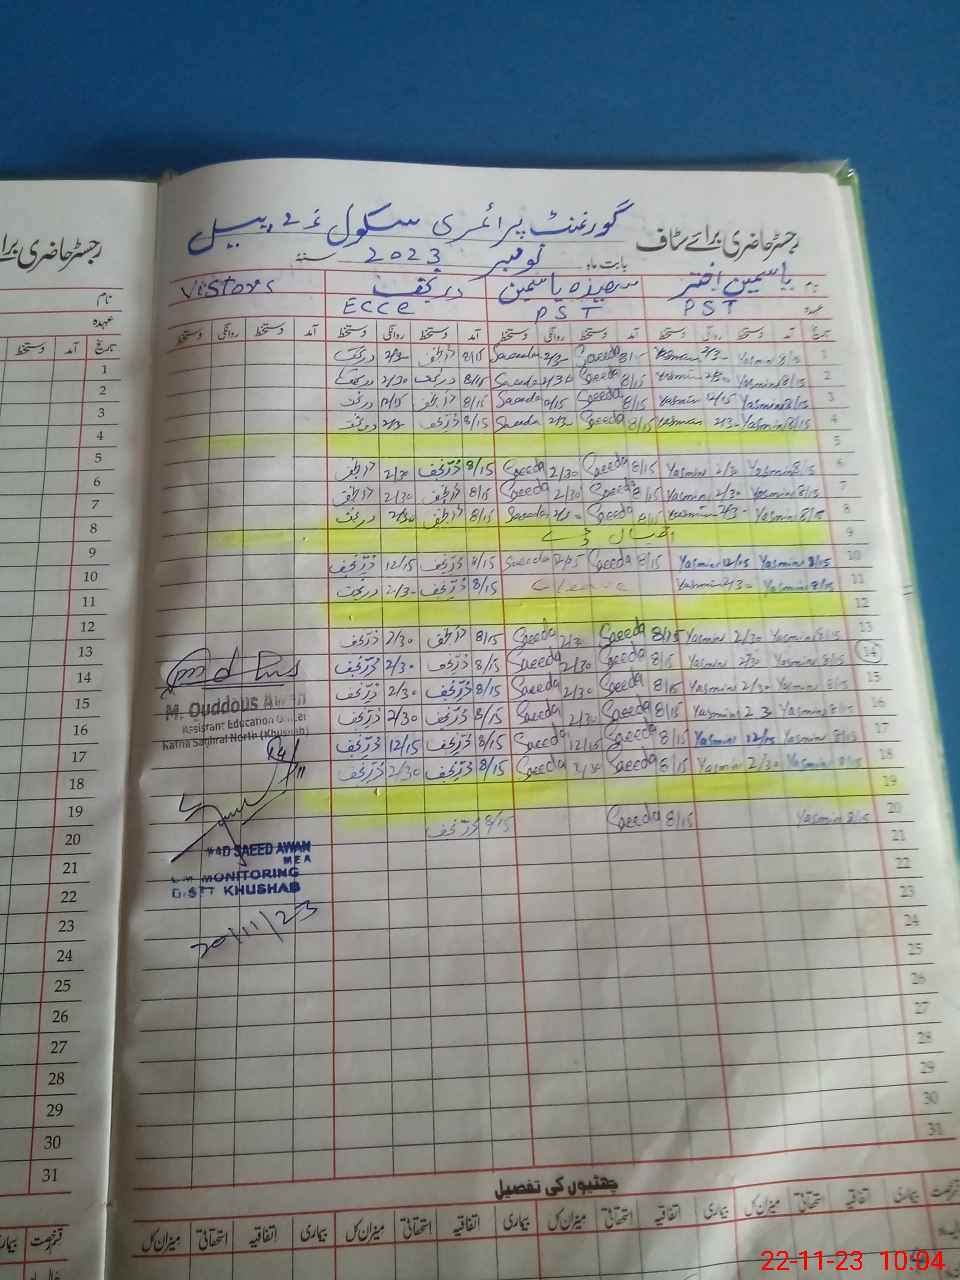 رجسٹر حاضری برائے سٹاف
گورنمنٹ پرائمری سکول
بابت ماہ نومبر 2023
نام یاسمین اختر سعیدہ یاسمین در نجف Vistors
عہدہ PST PST Ecce
تاریخ آمد دستخط روانگی دستخط آمد دستخط روانگی دستخط آمد دستخط روانگی دستخط آمد دستخط روانگی دستخط
1 8/15 Yasmin 2/3- Yasmin Saeeda 2/3- Saeeda 8/15
2 8/15 Yasmin Yasmin 8/15 Saeeda 2/30 Saeeda 8/15 در نجف 2/30 در نجف
3 8/15 Yasmin 12/15 Yasmin 8/15 Saeeda 12/15 Saeeda 8/15 12/15 در نجف
4 8/15 Yasmin 2/3- Yasmin 8/15 Saeeda 2/3- Saeeda 8/15 در نجف 2/3- در نجف
5
6 8/15 Yasmin 2/30 Yasmin 8/15 Saeeda 2/30 Saeeda 8/15 در نجف 2/30
7 8/15 Yasmin 2/30 Yasmin 8/15 Saeeda 2/30 Saeeda 8/15 2/30
8 8/15 Yasmin 2/3- Yasmin 8/15 Saeeda Saeeda 8/15 2/30 در نجف
9 اقبال ڈے
10 8/15 Yasmin 12/15 Yasmin 8/15 Saeeda Saeeda 8/15 در نجف 12/15 در نجف
11 8/15 Yasmin 2/3- Yasmin 8/15 در نجف 2/3- در نجف
12
13 8/15 Yasmin 2/30 Yasmin 8/15 Saeeda 2/30 Saeeda 8/15 2/30 در نجف
14 8/15 Yasmin 2/30 Yasmin 8/15 Saeeda 2/30 Saeeda 8/15 در نجف 2/30 در نجف
15 8/15 Yasmin 2/30 Yasmin 8/15 Saeeda 2/30 Saeeda 8/15 در نجف 2/30 در نجف
16 8/15 Yasmin Yasmin 8/15 Saeeda 2/30 Saeeda 8/15 در نجف 2/30 در نجف
17 8/15 Yasmin 12/15 Yasmin 8/15 Saeeda 12/15 Saeeda 8/15 در نجف 12/15 در نجف
18 8/15 Yasmin 2/30 Yasmin 8/15 Saeeda 2/30 Saeeda 8/15 در نجف 2/30 در نجف
19
20 8/15 Yasmin 8/15 Saeeda 8/15 در نجف
21
22
23
24
25
26
27
28
29
30
31
M. Quddous Awan
Assistant Education Officer
North (Khushab)
14/11
SAEED AWAN
MEA
MONITORING
DISTT KHUSHAB
20/11/23
چھٹیوں کی تفصیل
قسم رخصت بیماری اتفاقیہ استحقاقی میزان کل بیماری اتفاقیہ استحقاقی میزان کل بیماری اتفاقیہ استحقاقی میزان کل
رجسٹر حاضری برائے
نام
عہدہ
تاریخ آمد دستخط
1
2
3
4
5
6
7
8
9
10
11
12
13
14
15
16
17
18
19
20
21
22
23
24
25
26
27
28
29
30
31
قسم رخصت بیماری
22-11-23 10:04